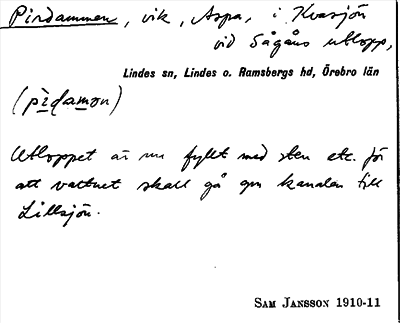 Pirdammen, vik, Aspa, i Kvasjön
vid Sågåns utlopp,
Lindes sn, Lindes o. Ramsbergs hd, Örebro län
(pìdamon)
Utloppet är nu fyllt med sten etc. för
att vattnet skall gå gm kanalen till
Lillsjön.
SAM JANSSON 1910-11